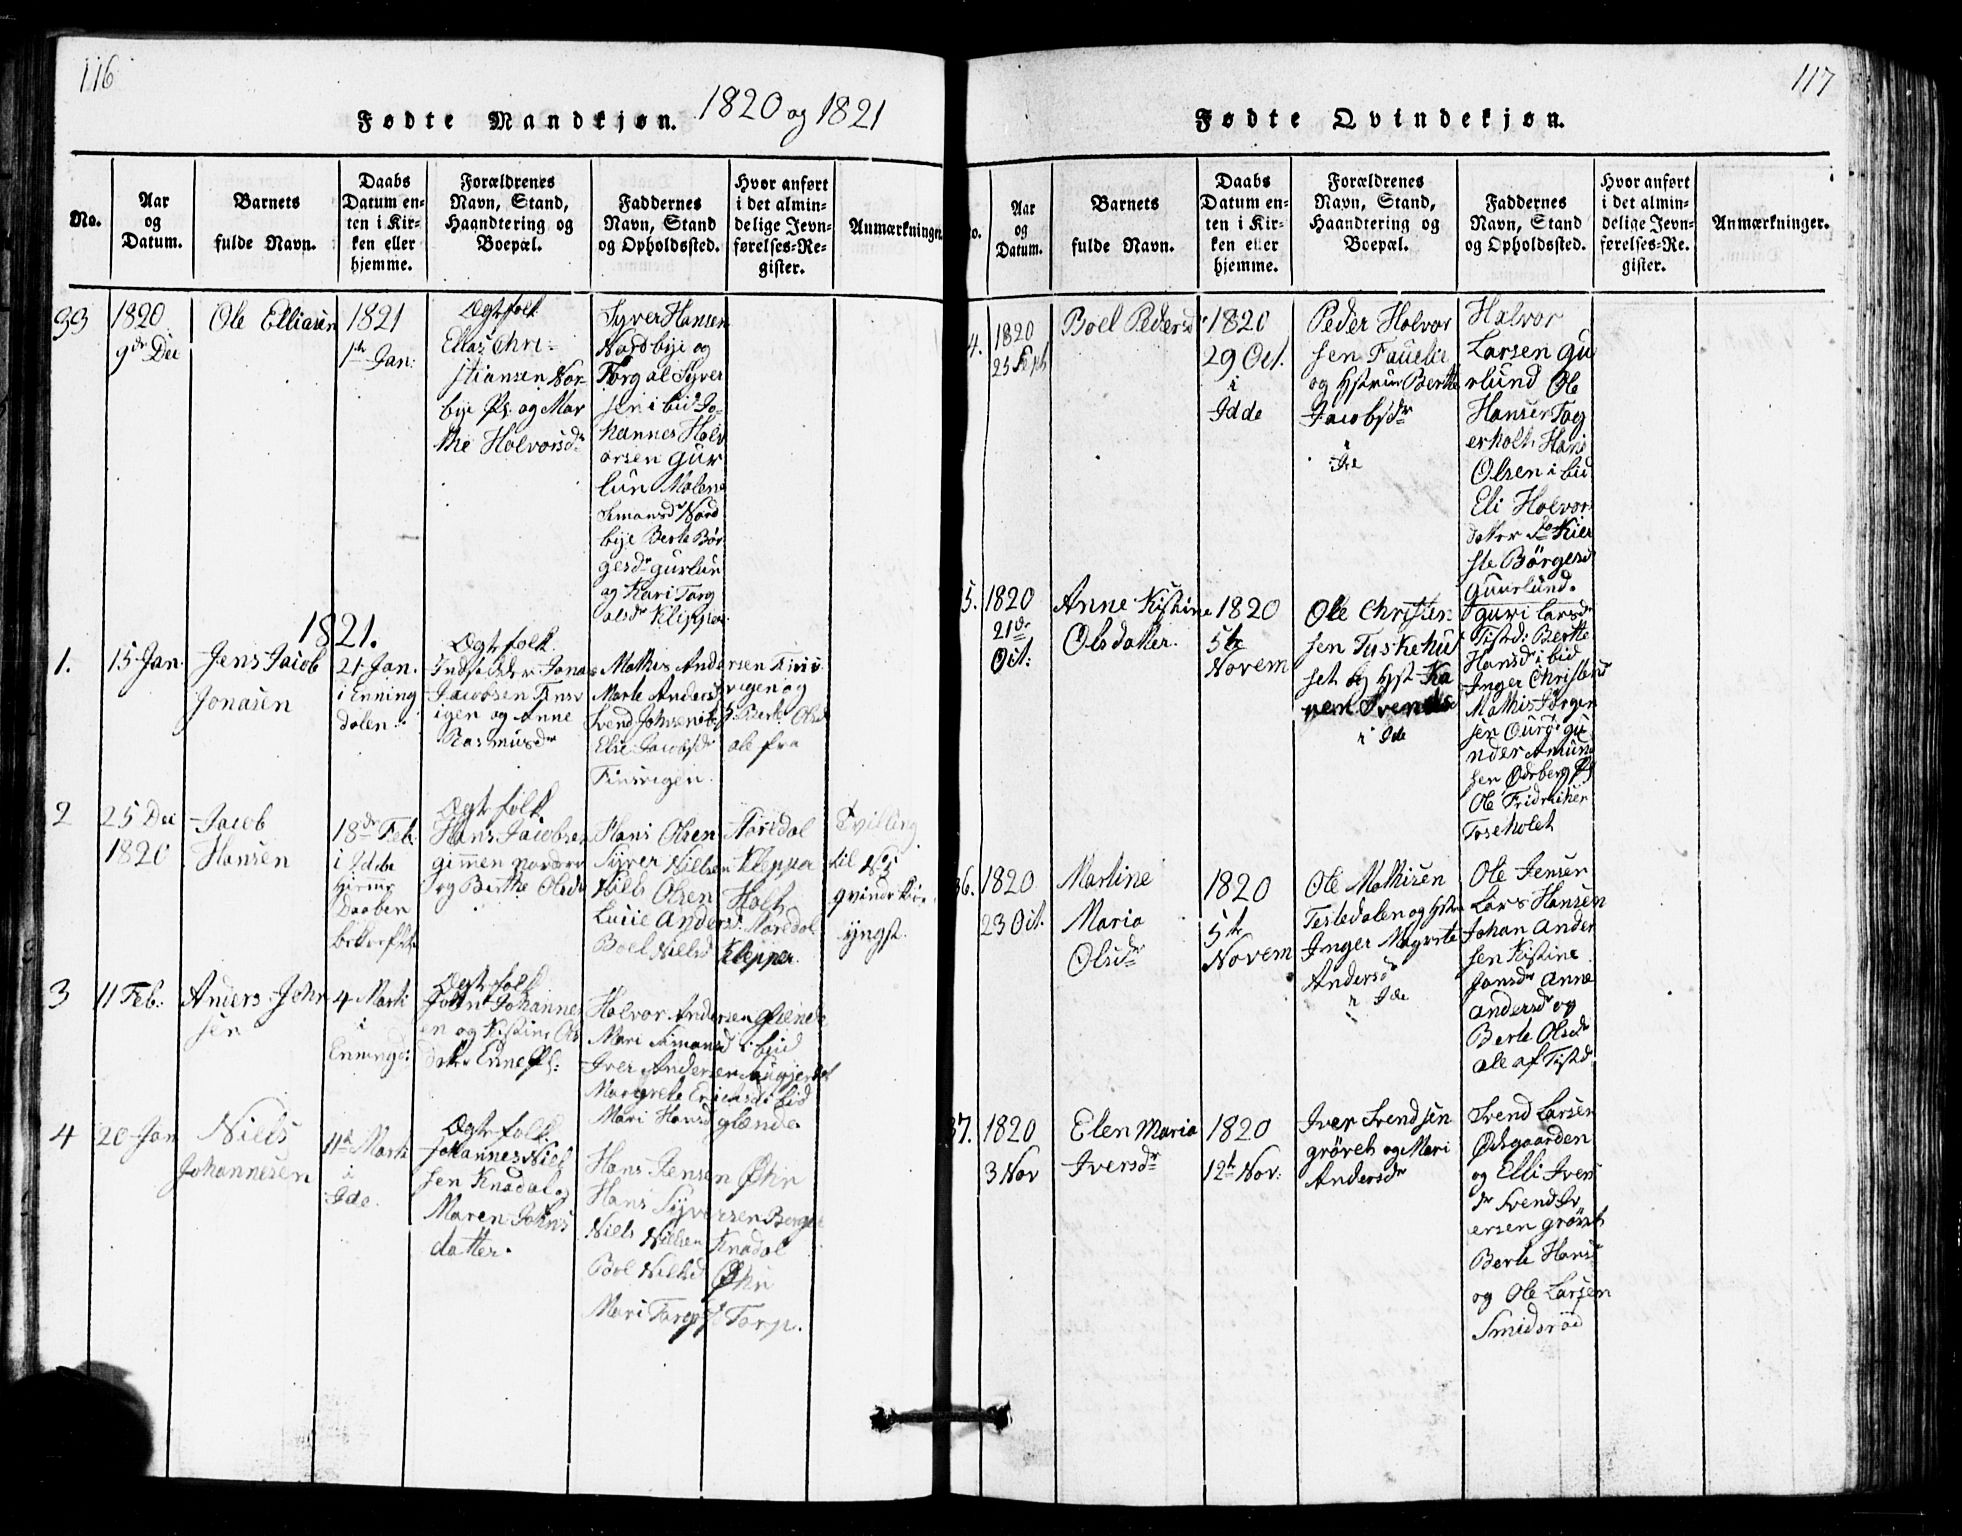 116
Fødte Mandkjøn. 1820 og 1821
No.
Aar
og
Datum.
Barnets
fulde Navn.
Daabs
Datum en-
ten i Kir-
ken eller
hjemme.
Forældrenes
Navn, Stand,
Haandtering og
Boepæl.
Faddernes
Navn, Stand
og Opholdssted.
Hvor anført
i det almin-
delige Jevn-
førelses-Re-
gister.
Anmærkninger.
1820
9de Dec
Ole Elliasen
1821
1te Jan.
Ægtefolk
Ellas Chri-
stiansen Nor-
bye Ps. og Mar
the Holvorsdr
Syver Hansen
Nordbye og
Torgal Syver
sen i bid Jo-
hannes Holv
orsen Gur
lun Malene
Simonsdr Nord
bye Berte Bør
gesdr gurlun
og Kari Torg
alsdr Klipper.
1821.
1.
15 Jan.
Jens Jacob
Jonasen
21 Jan.
i Enning
dalen.
Ægtefolk
Jonas
Jacobsen
igen og Anne
Rasmusdr
Mathis Andersen
Marte Andersd
Svend Johnsen
Berte Olsd
Else Jacobsdr
ale fra
2
25 Dec
1820
Jacob
Hansen
18de Feb.
i Idde
Daaben
Ægtefolk
Hans Jacobsen
og Berthe Olsdr
Hans Olsen
Syver Nielsen Klepper
Niels Olsen Holt
Lucie Andersd.
Boel Nielsd Klepper.
Tvilling
til No 5
yngst.
3
11 Feb:
Anders John
sen
4 Marti
i
Enningd:
Ægtefolk
John Johannes
en og Kistine Ols
datter Enne Ps:
Holvor Andersen Glende
Mari Simonsd i bid
Iver Andersen
Margrete Ericksd i bid
Mari Hansd glænde.
4
20 Jan
Niels
Johannesen
11te Marti
i
Ide.
Ægtefolk
Johannes Niel
sen Knadal og
Maren Johns
datter.
Hans Jensen Øhn
Hans Syversen Berger
Niels Nielsen Knadal
Boel Nielsd Øhn
Mari Torp.
117
Fødte Qvindekjøn.
No.
Aar
og
Datum.
Barnets
fulde Navn.
Daabs
Datum en-
ten i Kir-
ken eller
hjemme.
Forældrenes
Navn, Stand,
Haandtering og
Boepæl.
Faddernes
Navn, Stand
og Opholdssted.
Hvor anført
i det almin-
delige Jevn-
førelses-Re-
gister.
Anmærkninger.
4.
1820
25 Sept
Boel Pedersdr
1820
29 Oct.
i
Idde
Peder Holvor
sen
og Hstrue Berthe
Jacobsdr
i
Ide
Holvor
Larsen Gu
rlund Ole
Hansen Tag
erholt Hans
Olsen i bid
Eli Holvor
datter do Kier
ste Børgesd
Guurlund.
5.
1820
21de
Oct:
Anne Kistine
Olsdatter.
1820
5te
Novem
Ole Christen
sen Tuskehu
set og Hst Ka
ren Svensd
i Ide
guri Larsdr
Tistd: Berthe
Hansd i bid
Inger Christensd
Mathis Jørgen
sen
Amun
sen Ødberg Ps
Ole Fridrichsen
Toseholet
36.
1820
23 Oct.
Martine
Maria
Olsdr
1820
5te
Novem
Ole Mathisen
Testedalen og Hstru
Inger Magrete
Andersdr
i Ide
Ole Jensen
Lars Hansen
Johan Ander
sen Kistine
Jansdr Anne
Andersdr og
Berte Olsdr
ale af Tistd.
37.
1820
3 Nov
Elen Maria
Iversdr
1820
12te Nov.
Iver Svendsen
grøvet og Mari
Andersdr
Svend Larsen
Ødegaarden
og Elli Ivers
dr Svend Iv
ersen grøvet
Berte Hansd
og Ole Larsen
Smidsrød